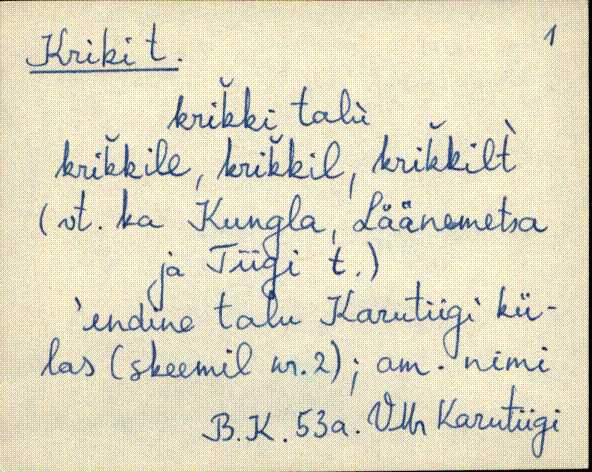 Kriki t. 1
krik̆ki talù
krik̆kile, krik̆kil, krik̆kilt̀
(vt. ka Kungla, Läänemetsa
ja Tiigi t.)
'endine talu Karutiigi kü-
las (skeemil nr. 2); am. nimi
B.K. 53a. VMr Karutiigi